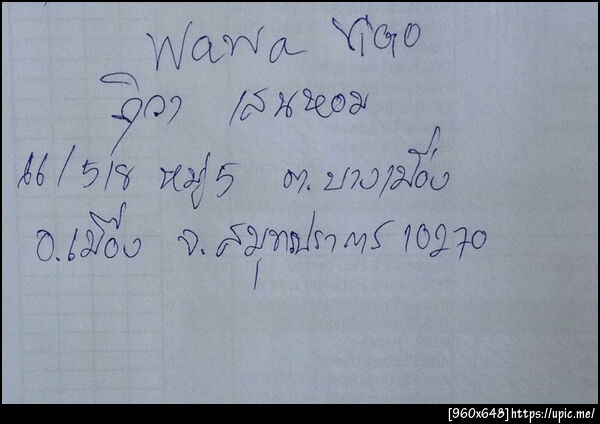 WaWa ViGO
ภูวา เสนหอม
66/518 หมู่ 5 ต.บางเมือง
อ.เมือง จ.สมุทรปราการ 10270
[960x648] https://upic.me/